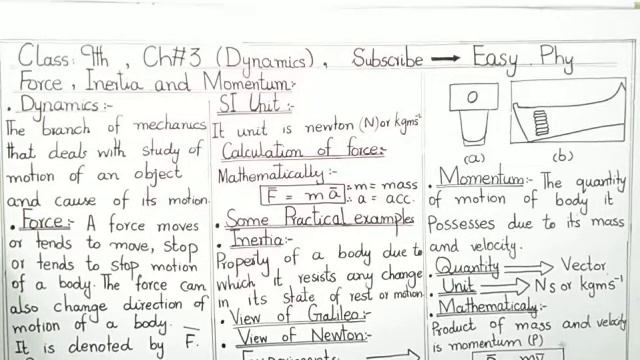 Class: 9th, Ch#3 (Dynamics), Subscribe → Easy Phy
Force, Inertia and Momentum:-
• Dynamics:-
The branch of mechanics
that deals with study of
motion of an object
and cause of its motion.
• Force:- A force moves
or tends to move, stop
or tends to stop motion
of a body. The force can
also change direction of
motion of a body.
It is denoted by F̅.
SI Unit:-
It unit is newton (N) or kgms⁻²
Calculation of force:-
Mathematically:-
F̅ = m a̅ ∵ m = mass
∴ a = acc.
• Some Practical examples
• Inertia:-
Property of a body due to
which it resists any change
in its state of rest or motion
• View of Galileo:
• View of Newton:
(a) (b)
• Momentum: The quantity
of motion of body it
Possesses due to its mass
and velocity.
• Quantity ⟹ Vector
• Unit ⟹ Ns or kgms⁻¹
• Mathematicaly:
Product of mass and velocity
is momentum (P)